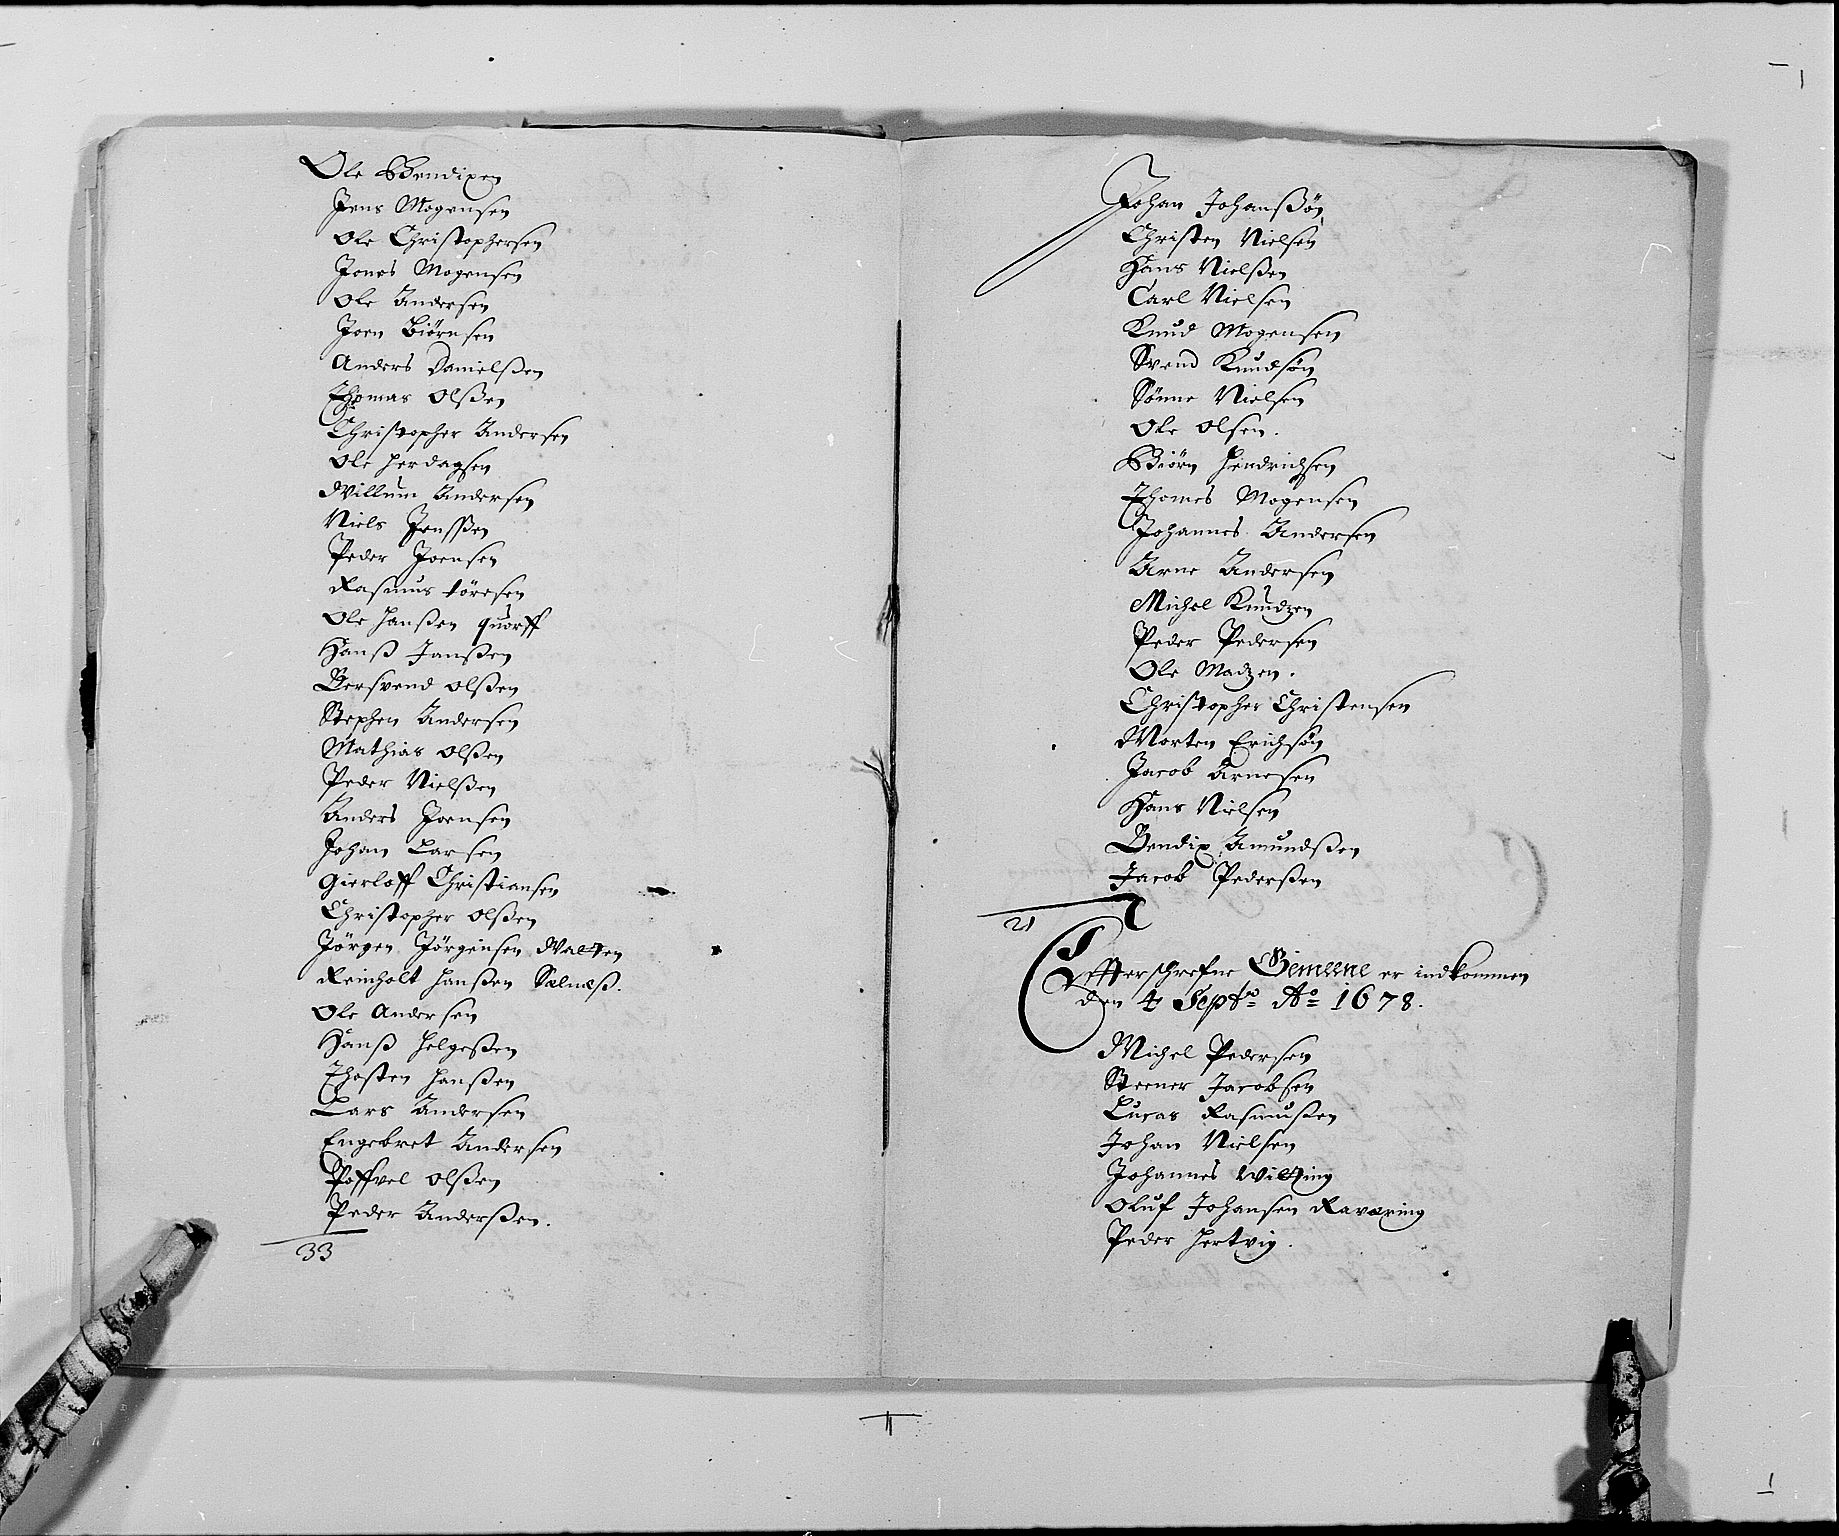 Ole Bendixen
Jens Mogensen
Ole Christophersen
Jones Mogensen
Ole Andersen
Joen Biörnsen
Anders Danielßen
Thomas Olßen
Christopher Andersen
Ole Herdagsen
Willum Andersen
Niels Jenssen
Peder Joensen
Rasmus Töresen
Ole Hanßen quorff
Hanß Janßen
Bersvend Olßen
Stephen Andersen
Mathias Olßen
Peder Nielßen
Anders Joensen
Johan Larsen
Gierloff Christiansen
Christopher Olßen
Jörgen Jörgensen Walter
Reinholt Hanßen Selneß.
Ole Andersen
Hanß Helgeßen
Thosten Hanßen
Lars Andersen
Engebret Andersen
Poffvel Olßen
Peder Anderßen.
33
Johan Johanßön
Christen Nielsen
Hans Nielßen
Carl Nielsen
Knud Mogensen
Svend Knudsön
Sönne Nielsen
Ole Olsen.
Biörn Hendrichsen
Thomes Mogensen
Johannes Andersen
Arne Andersen
Michel Knudzen
Peder Pedersen
Ole Madzen.
Christopher Christensen
Morten Erichsön
Jacob Arnesen
Hans Nielsen
Bendix Amundßen
Jacob Pederßen
21
Effterschrefne Gemeene er indkommen
den 4 Septr Ao 1678.
Michel Pedersen
Steener Jacobsen
Lucas Rasmußen
Johan Nielsen
Johannes Wilting
Oluf Johansen Raværing
Peder Hertvig.